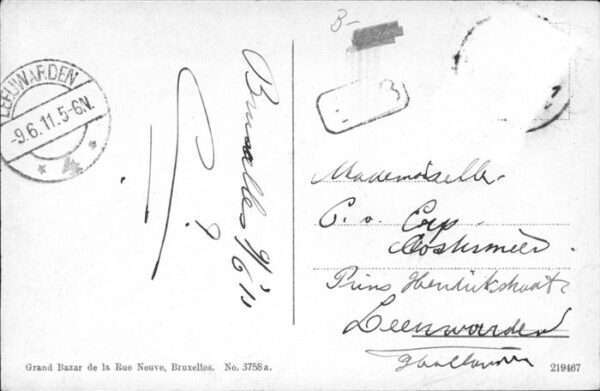 LEEUWARDEN
-9.6.11.5-6N.
* 4 *
Bruxelles 9/6 11
B-
3
Mademoiselle
C. v. Erp
Prins Hendrikstraat
Leeuwarden
Grand Bazar de la Rue Neuve, Bruxelles. No. 3758a.
219467